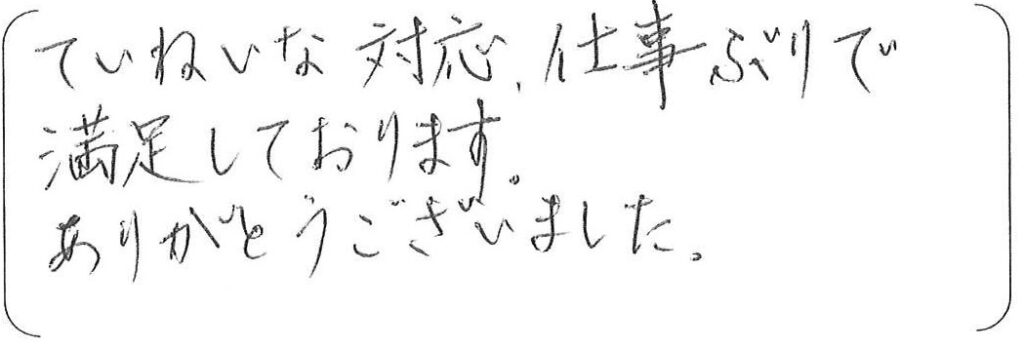 ていねいな対応、仕事ぶりで
満足しております。
ありがとうございました。